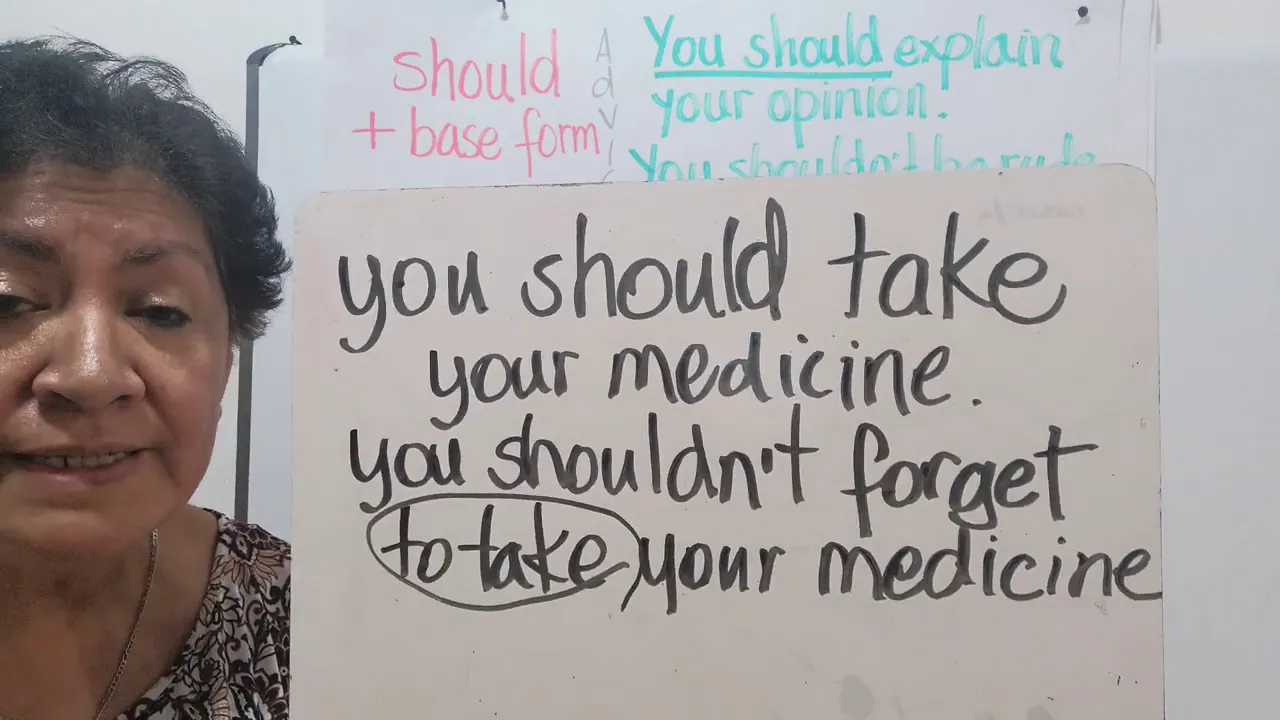 should
+ base form
Advi
You should explain
your opinion.
You shouldn't be rude
you should take
your medicine.
you shouldn't forget
to take your medicine